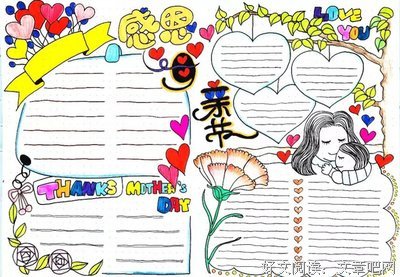 感恩
母亲节
LOVE
YOU
THANKS MOTHER'S
DAY
好文阅读：文章吧网